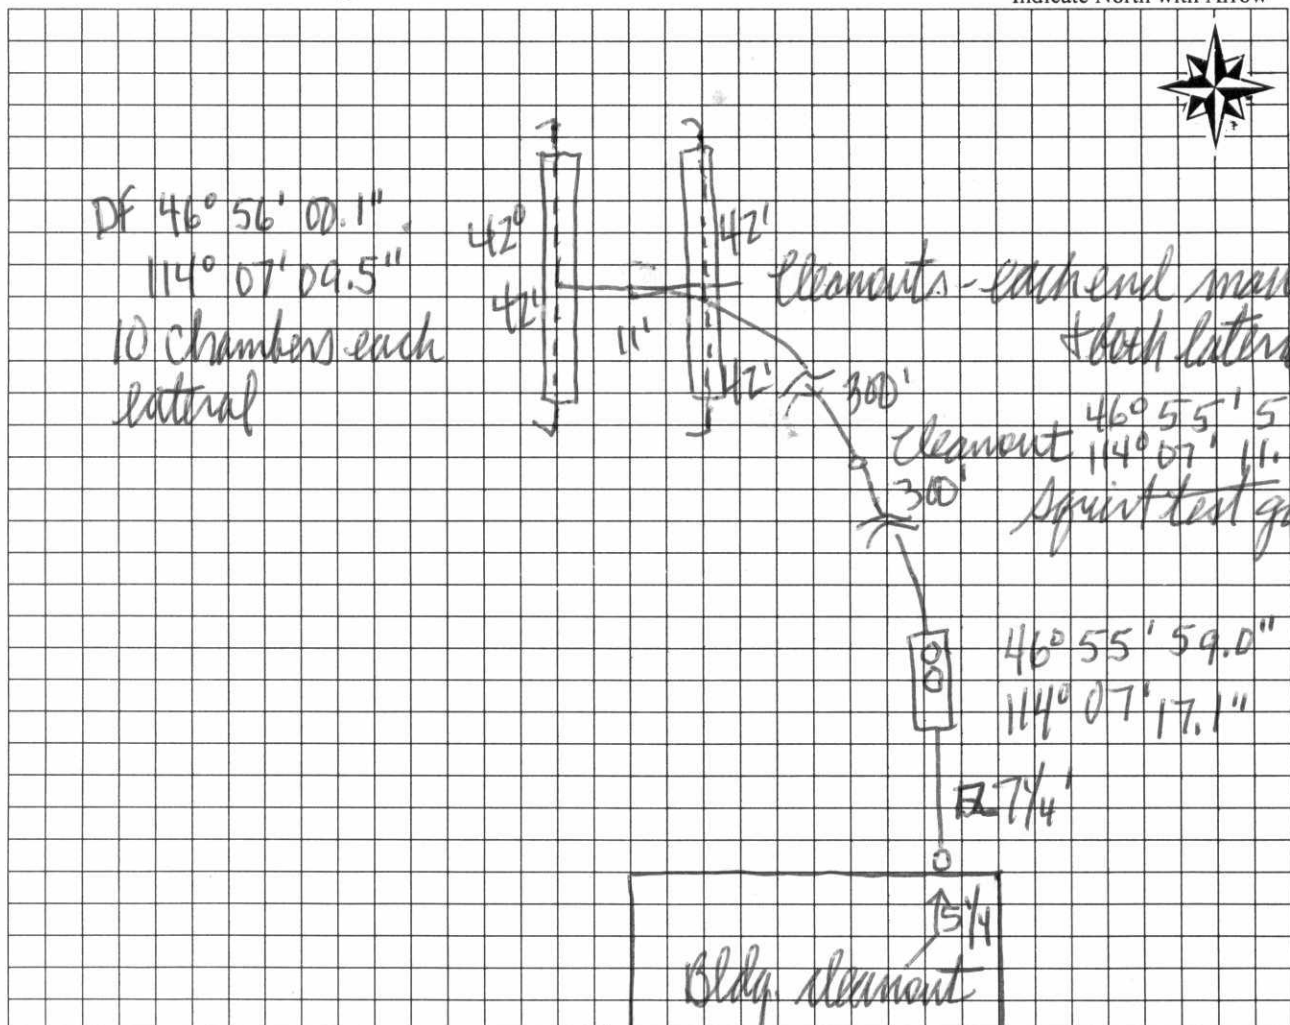 Indicate North with Arrow
DF 46° 56' 00.1"
114° 07' 09.5"
10 Chambers each
lateral
42'
42'
42'
42'
11'
Cleanouts - each end
+ both
300'
Cleanout
46° 55' 5
114° 07' 11.
300'
Squirt test
46° 55' 59.0"
114° 07' 17.1"
7 1/4'
5 1/4
Bldg. Cleanout